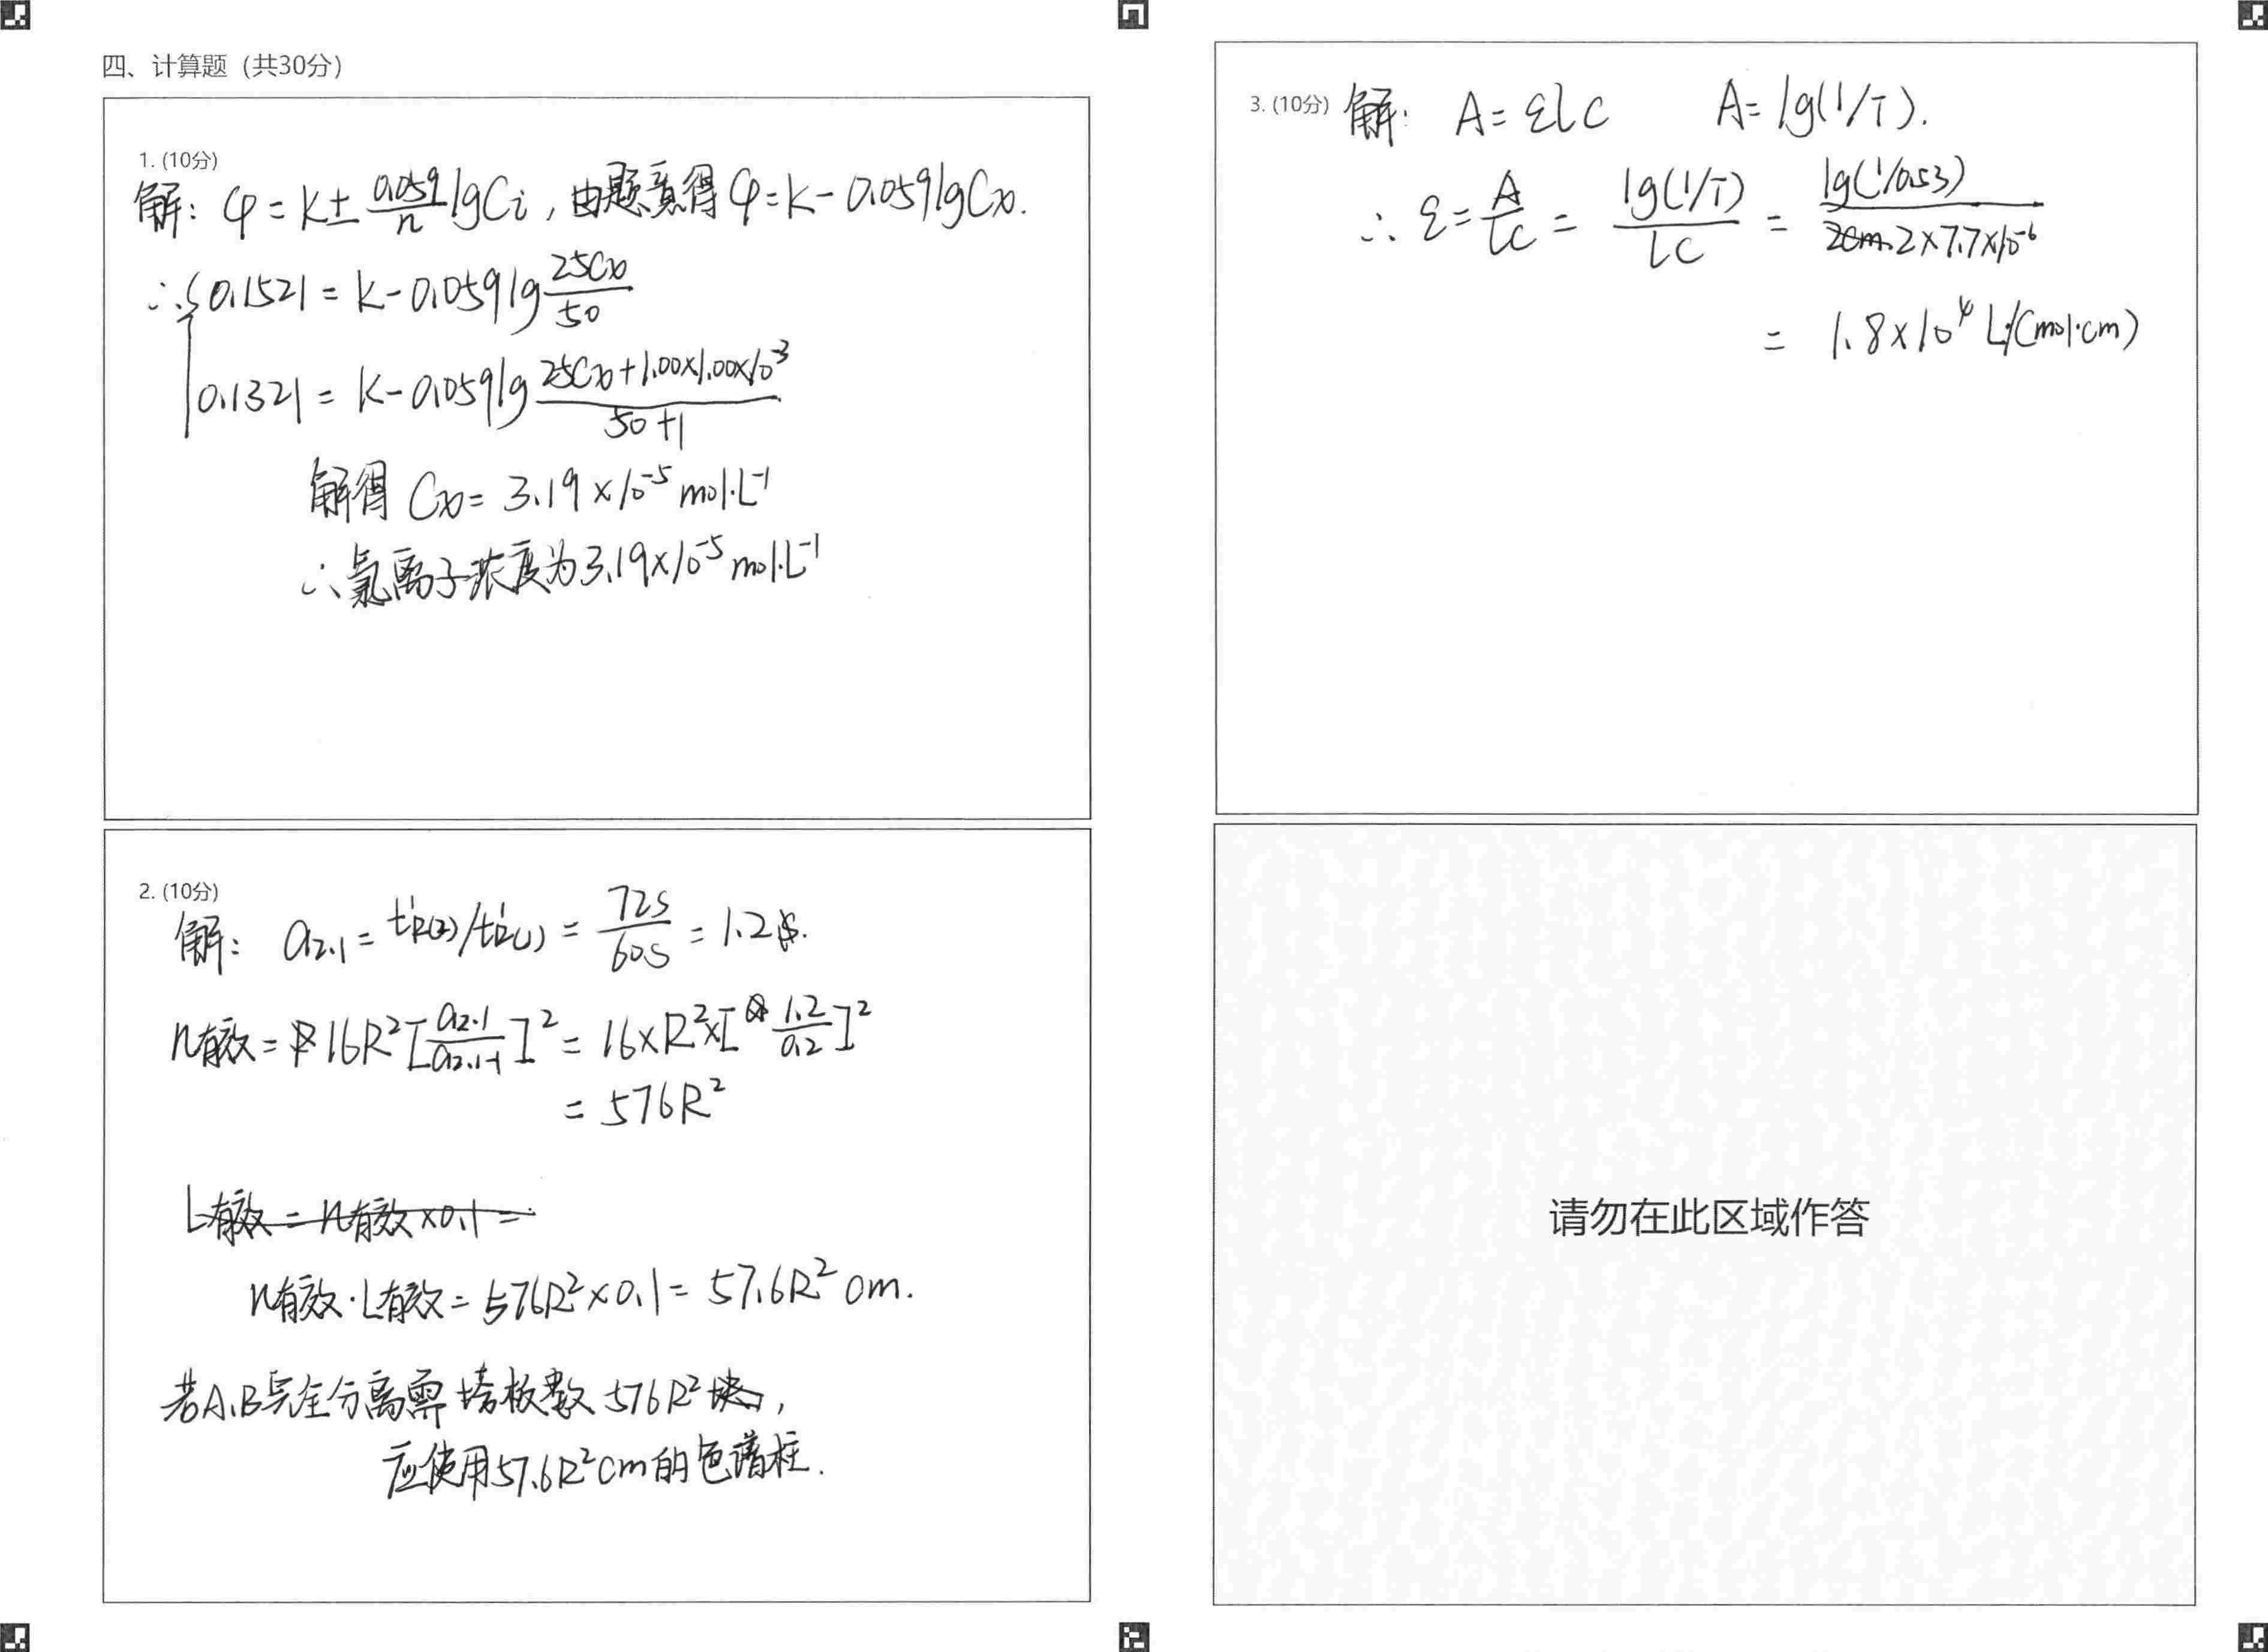 四、计算题（共30分）
1. (10分)
解: φ = k ± 0.059/n lgCi, 由题意得 φ = k - 0.059lgCx.
∴ { 0.1521 = k - 0.059lg 25Cx/50
0.1321 = k - 0.059lg (25Cx + 1.00×1.00×10⁻³)/(50+1)
解得 Cx = 3.19×10⁻⁵ mol·L⁻¹
∴ 氯离子浓度为3.19×10⁻⁵ mol·L⁻¹
2. (10分)
解: α2.1 = t'R(2)/t'R(1) = 72s/60s = 1.2
n有效 = 16R²[α2.1/(α2.1-1)]² = 16×R²×[1.2/0.2]²
= 576R²
L有效 = n有效×0.1 =
n有效·L有效 = 576R²×0.1 = 57.6R² cm.
若A、B完全分离需塔板数576R²块,
应使用57.6R²cm的色谱柱.
3. (10分) 解: A = εlc A = lg(1/T).
∴ ε = A/LC = lg(1/T)/LC = lg(1/0.53)/(2×7.7×10⁻⁶)
= 1.8×10⁴ L/(mol·cm)
请勿在此区域作答